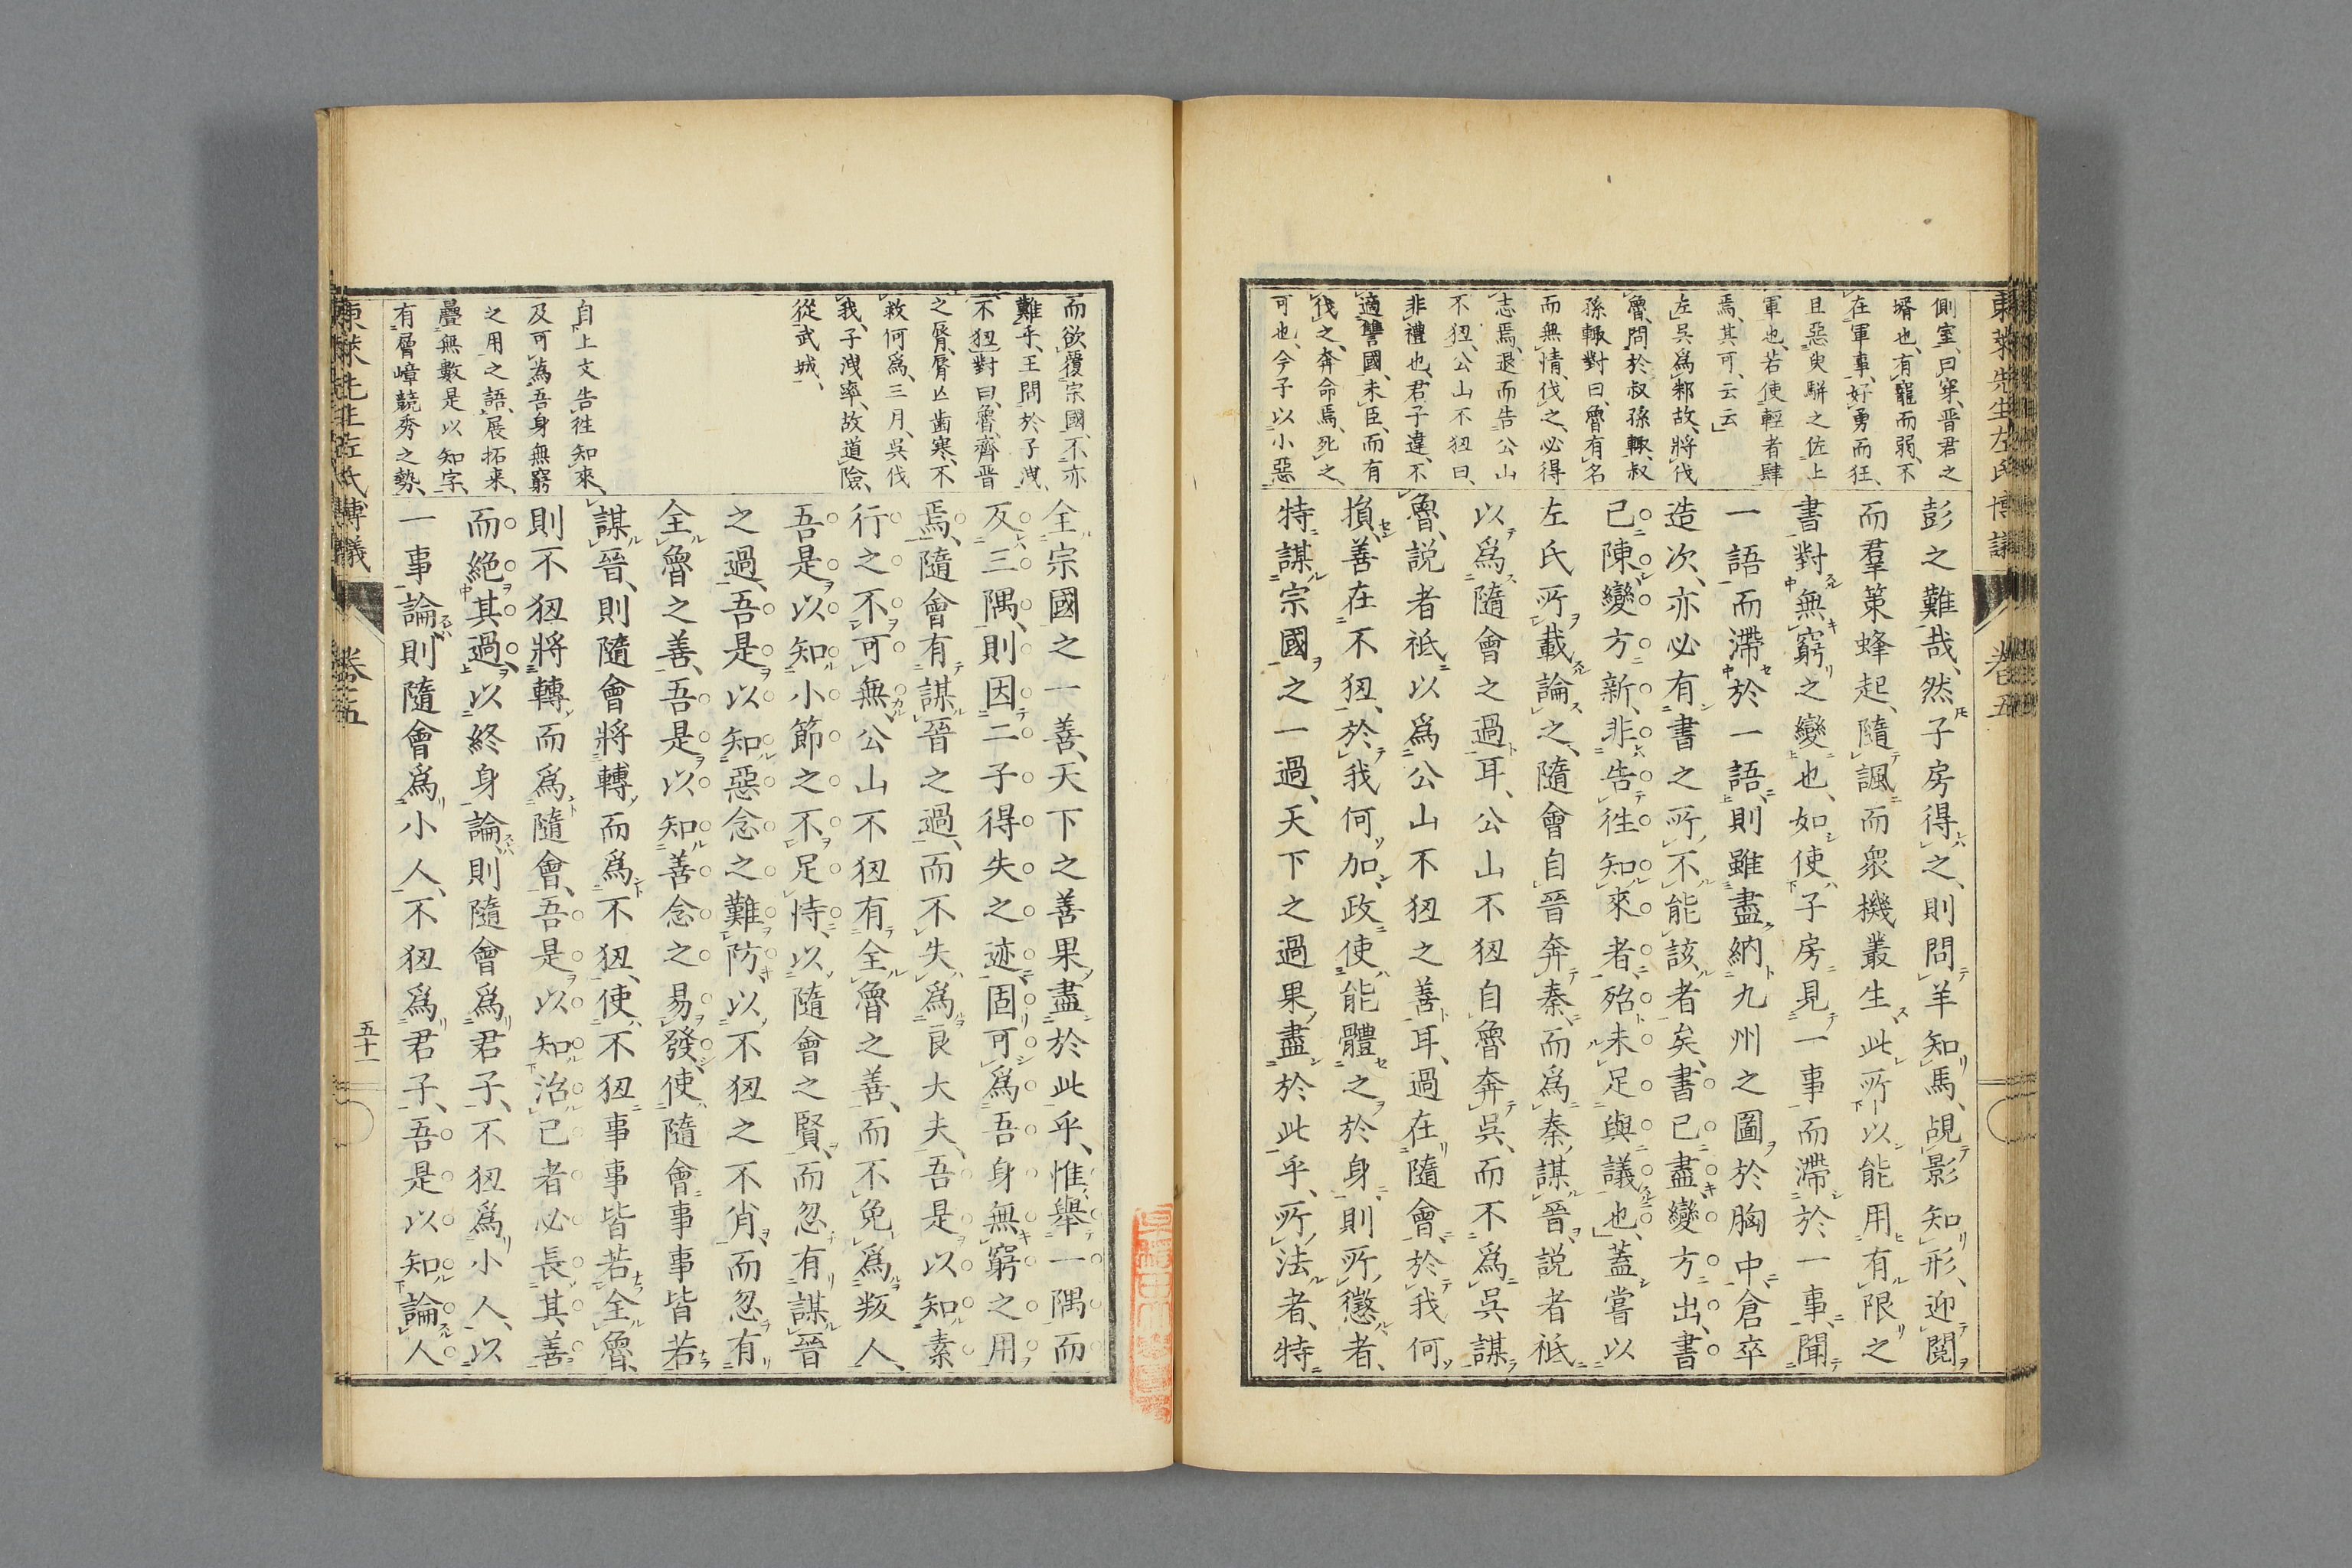 東萊先生左氏博議
卷五
側室、曰穿、晋君之
壻也、有寵而弱、不
在軍事、好勇而狂、
且惡臾駢之佐上
軍也、若使輕者肆
焉、其可、云云
左吳爲邾故、將伐
魯、問於叔孫輒、叔
孫輒對曰、魯有名
而無情、伐之、必得
志焉、退而告公山
不狃、公山不狃曰、
非禮也、君子違、不
適讐國、未臣、而有
伐之、奔命焉、死之
可也、今子以小惡
彭之難哉、然子房得之、則問羊知馬、覘影知形、迎閲
而羣策蜂起、隨諷而衆機叢生、此所以能用有限之
書對無窮之變也、如使子房見一事而滯於一事、聞
一語而滯於一語、則雖盡納九州之圖於胸中、倉卒
造次、亦必有書之所不能該者矣、書已盡變方出、書
已陳變方新、非告往知來者、殆未足與議也、蓋嘗以
左氏所載論之、隨會自晉奔秦、而爲秦謀晉、説者祗
以爲隨會之過耳、公山不狃自魯奔吳、而不爲吳謀
魯、説者祗以爲公山不狃之善耳、過在隨會、於我何
損、善在不狃、於我何加、政使能體之於身、則所懲者、
特謀宗國之一過、天下之過果盡於此乎、所法者、特
而欲覆宗國、不亦
難乎、王問於子洩、
不狃對曰、魯、齊晋
之脣、脣亾齒寒、不
救何爲、三月、吳伐
我、子洩率、故道險、
從武城、
自上文告往知來、
及可爲吾身無窮
之用之語、展拓来、
疊無數是以知字、
有層嶂競秀之勢、
全宗國之一善、天下之善果盡於此乎、惟舉一隅而
反三隅、則因二子得失之迹、固可爲吾身無窮之用
焉、隨會有謀晉之過、而不失爲良大夫、吾是以知素
行之不可無、公山不狃有全魯之善、而不免爲叛人、
吾是以知小節之不足恃、以隨會之賢、而忽有謀晉
之過、吾是以知惡念之難防、以不狃之不肖、而忽有
全魯之善、吾是以知善念之易發、使隨會事事皆若
謀晉、則隨會將轉而爲不狃、使不狃事事皆若全魯、
則不狃將轉而爲隨會、吾是以知治己者必長其善
而絶其過、以終身論則隨會爲君子、不狃爲小人、以
一事論則隨會爲小人、不狃爲君子、吾是以知論人
東萊先生左氏博議
卷五
五十一